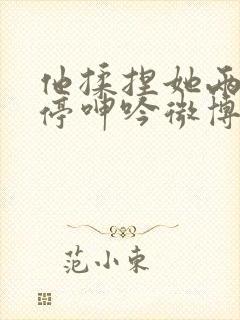 他揉捏她两
停呻吟微博
范小东